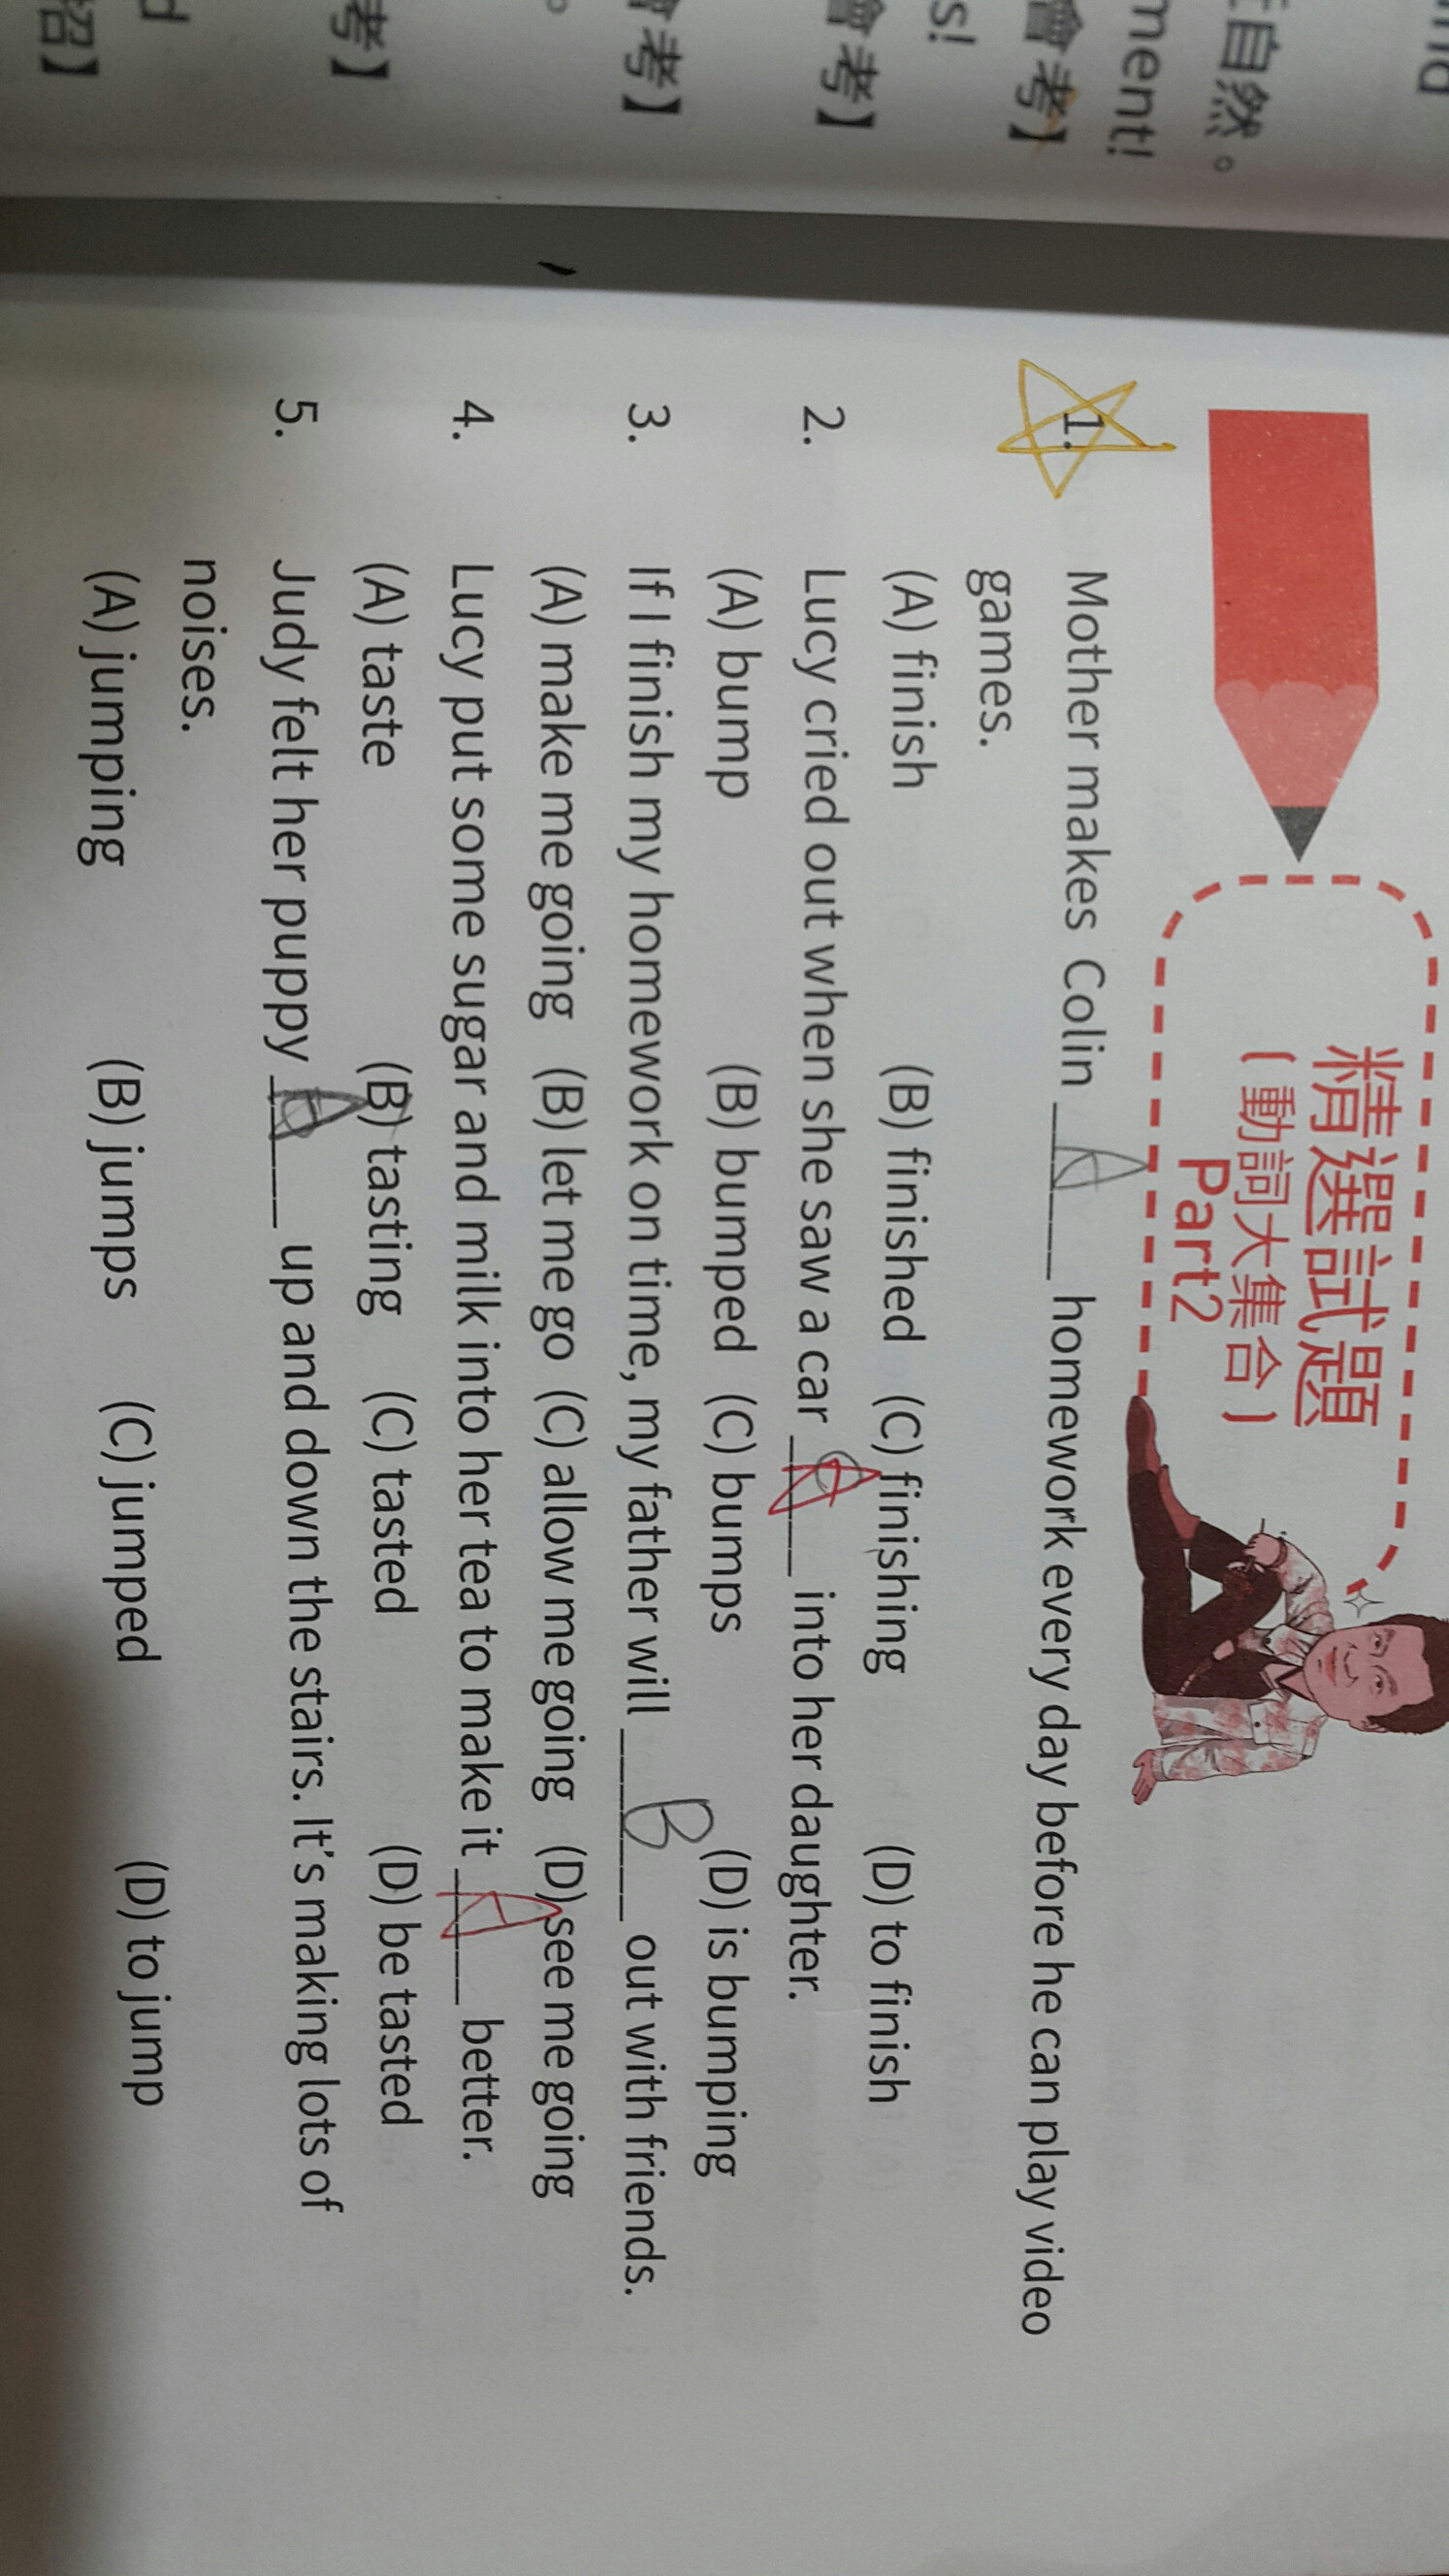 nd
自然。
ment!
會考】
s!
會考】
會考】
。
考】
d
招】
精選試題
(動詞大集合)
Part2
1. Mother makes Colin __A__ homework every day before he can play video
games.
(A) finish (B) finished (C) finishing (D) to finish
2. Lucy cried out when she saw a car __A__ into her daughter.
(A) bump (B) bumped (C) bumps (D) is bumping
3. If I finish my homework on time, my father will __B__ out with friends.
(A) make me going (B) let me go (C) allow me going (D) see me going
4. Lucy put some sugar and milk into her tea to make it __A__ better.
(A) taste (B) tasting (C) tasted (D) be tasted
5. Judy felt her puppy __A__ up and down the stairs. It's making lots of
noises.
(A) jumping (B) jumps (C) jumped (D) to jump